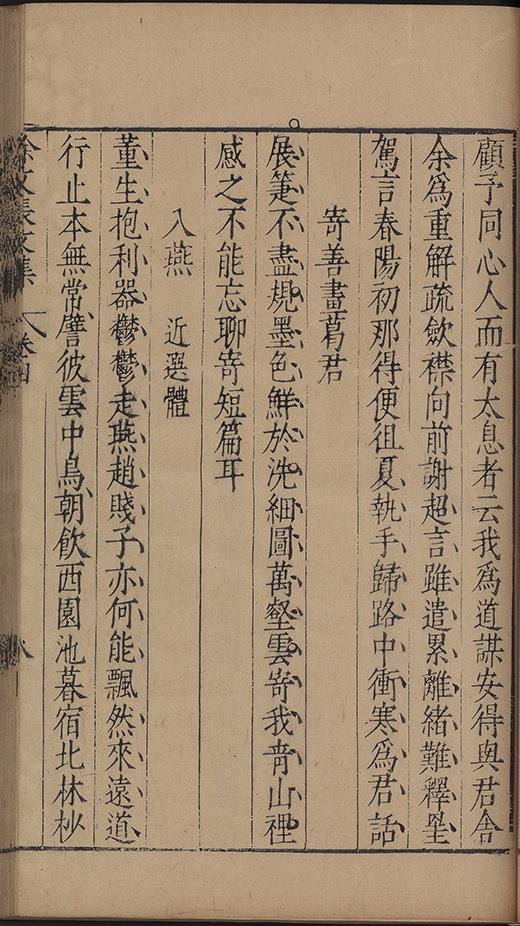 顧予同心人而有太息者云我爲道謀安得與君舍
余爲重解疏歛襟向前謝超言雖遣累離緒難釋
駕言春陽初那得便徂夏執手歸路中衝寒爲君話
寄善畫葛君
展箑不盡規墨色鮮於洗細圖萬壑雲寄我青山裡
感之不能忘聊寄短篇耳
入燕 近選體
董生抱利器鬱鬱走燕趙賤子亦何能飄然來遠道
行止本無常譬彼雲中鳥朝飲西園池暮宿北林杪
徐文長文集 卷四 八